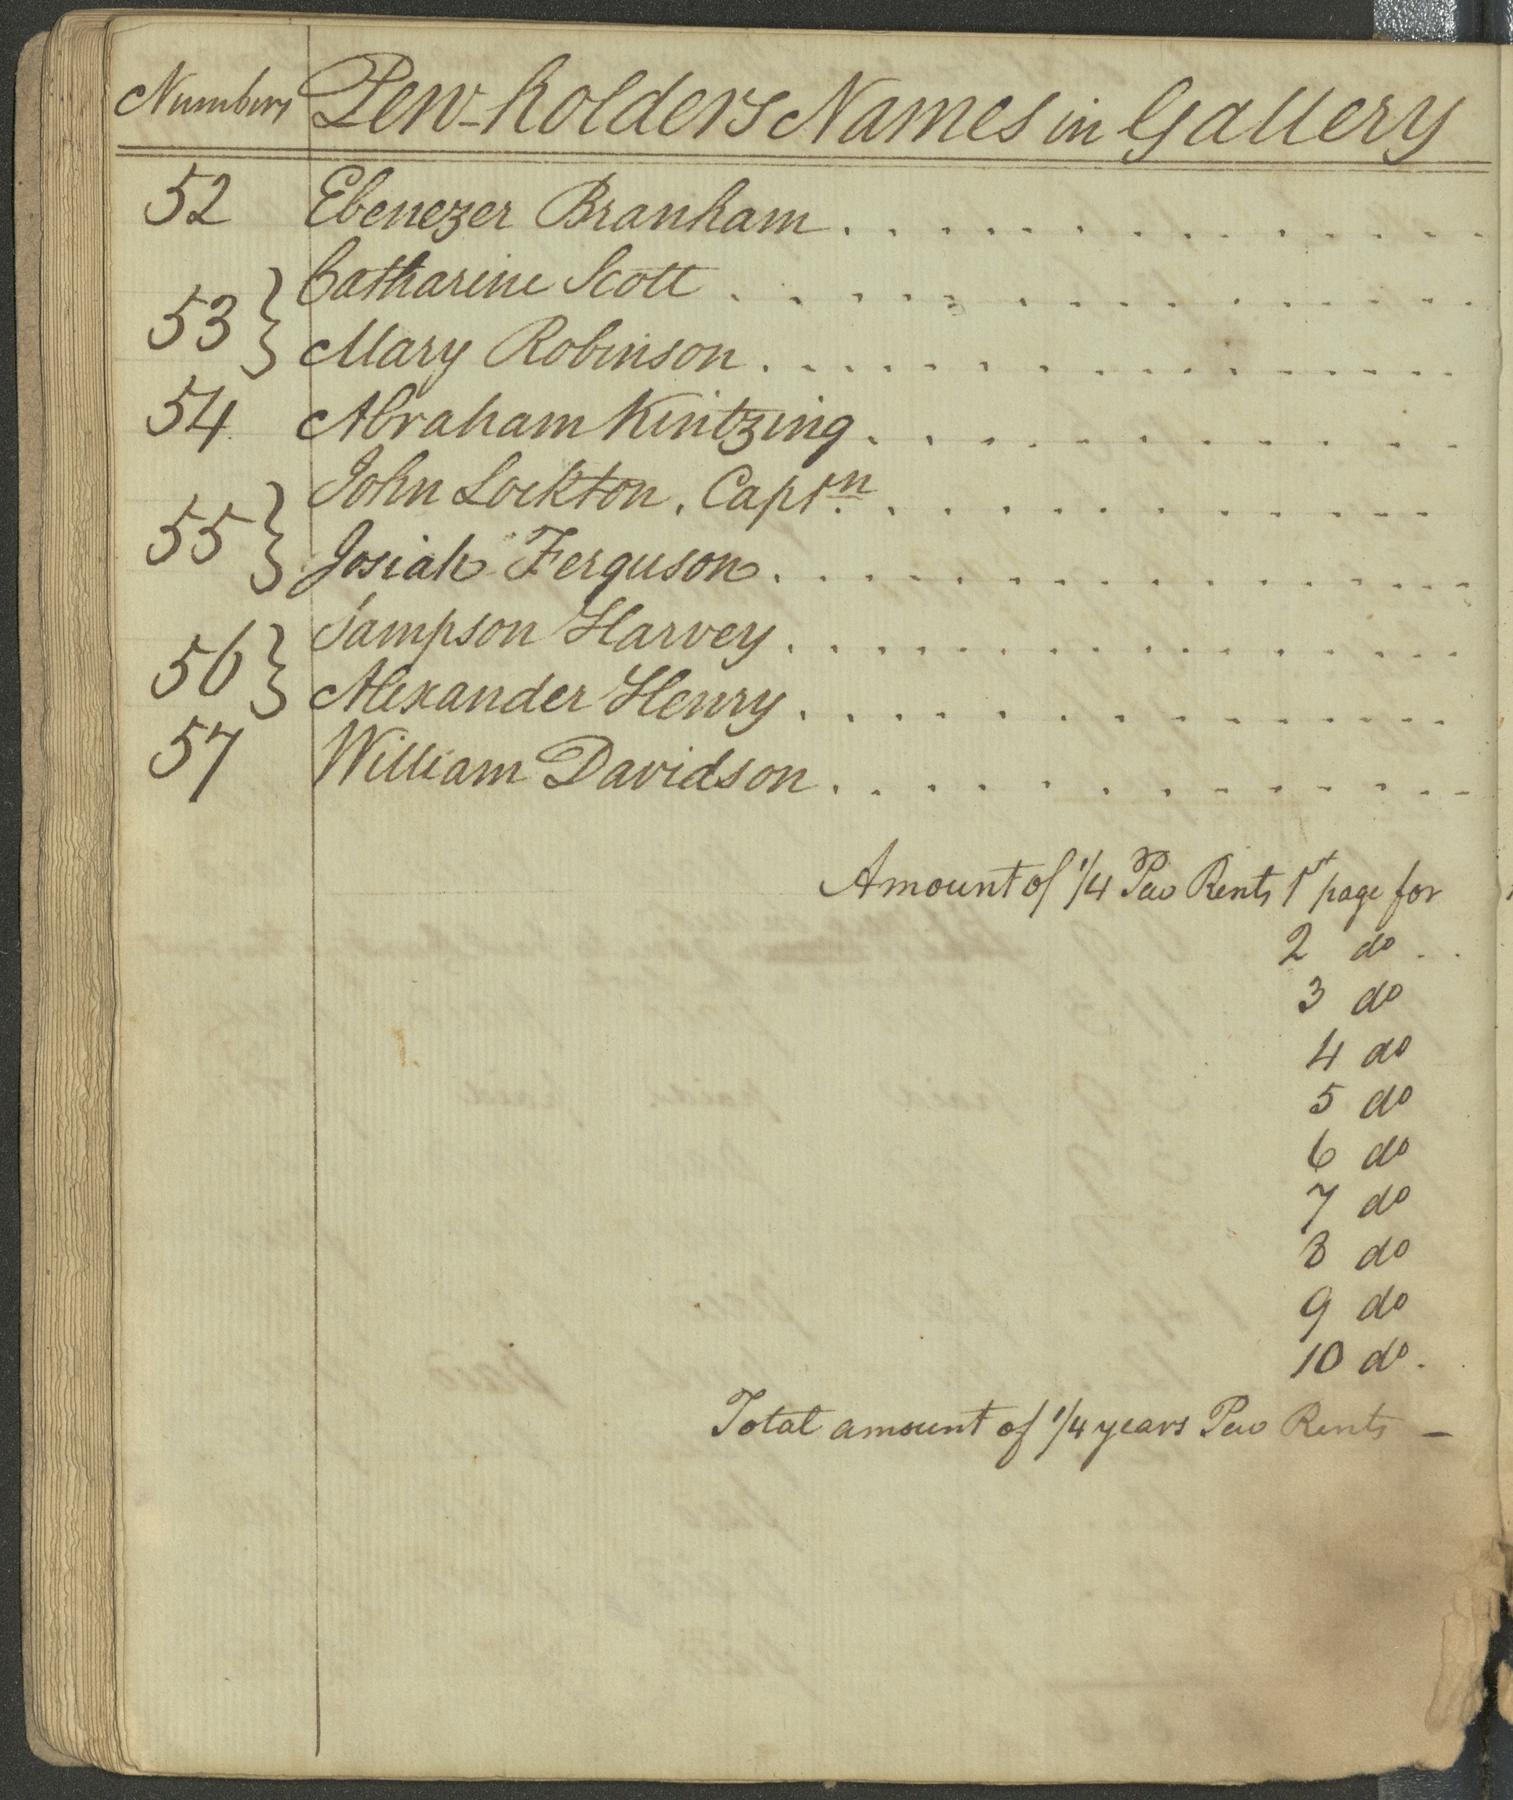 Numbers Pew-holders Names in Gallery
52 Ebenezer Branham . . . . . . . . . . . .
53 } Catharine Scott . . . . . . . . . . . . .
Mary Robinson . . . . . . . . . . . . . .
54 Abraham Kintzing . . . . . . . . . . .
55 } John Lockton, Captn . . . . . . . . . . .
Josiah Ferguson . . . . . . . . . . . . .
56 } Sampson Harvey . . . . . . . . . . . . .
Alexander Henry . . . . . . . . . . . . .
57 William Davidson . . . . . . . . . . . .
Amount of 1/4 Pew Rents 1st page for
2 do . .
3 do
4 do
5 do
6 do
7 do
8 do
9 do
10 do .
Total amount of 1/4 years Pew Rents —